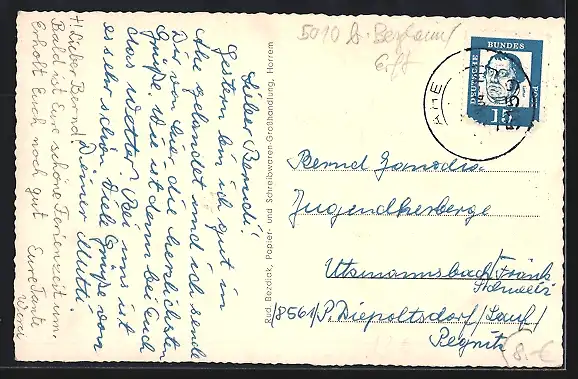 5010 b. Bergheim/
Erft
DEUTSCHE BUNDESPOST
15
AHE
Lieber Bernd!
Gestern bin ich gut in
Ahe gelandet und ich sende
Dir von hier die herzlichsten
Grüße. Wie ist denn bei Euch
das Wetter? Bei uns ist
es sehr schön. Viele Grüße von
Deiner Mutti.
H! Lieber Bernd!
Bald ist Eure schöne Ferienzeit um.
Erholt Euch noch gut. Eure Tante
Rud. Bezdiak, Papier- und Schreibwaren-Großhandlung, Horrem
Bernd
Jugendherberge
Utzmannsbach/Fränk
Schweiz
/8561/P. Diepoltsdorf/Lauf/
Pegnitz
8,-€